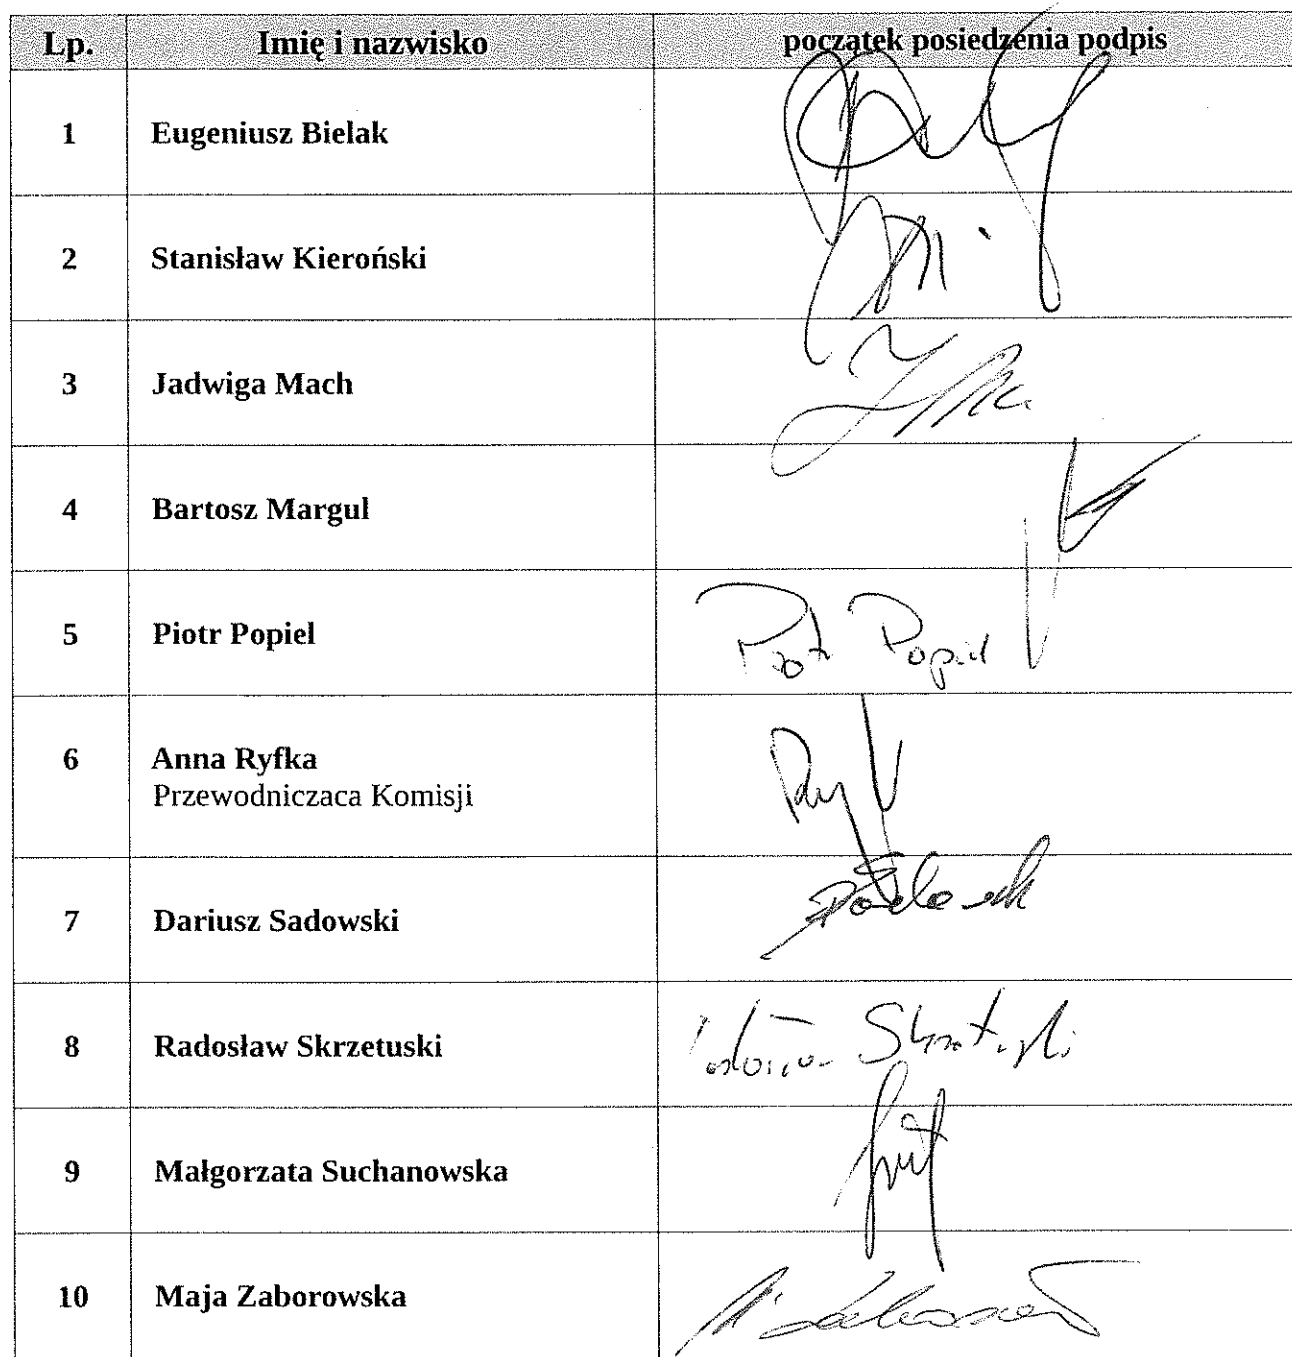 Lp. Imię i nazwisko początek posiedzenia podpis
1 Eugeniusz Bielak
2 Stanisław Kieroński
3 Jadwiga Mach
4 Bartosz Margul
5 Piotr Popiel Piotr Popiel
6 Anna Ryfka
Przewodniczaca Komisji
7 Dariusz Sadowski
8 Radosław Skrzetuski
9 Małgorzata Suchanowska
10 Maja Zaborowska